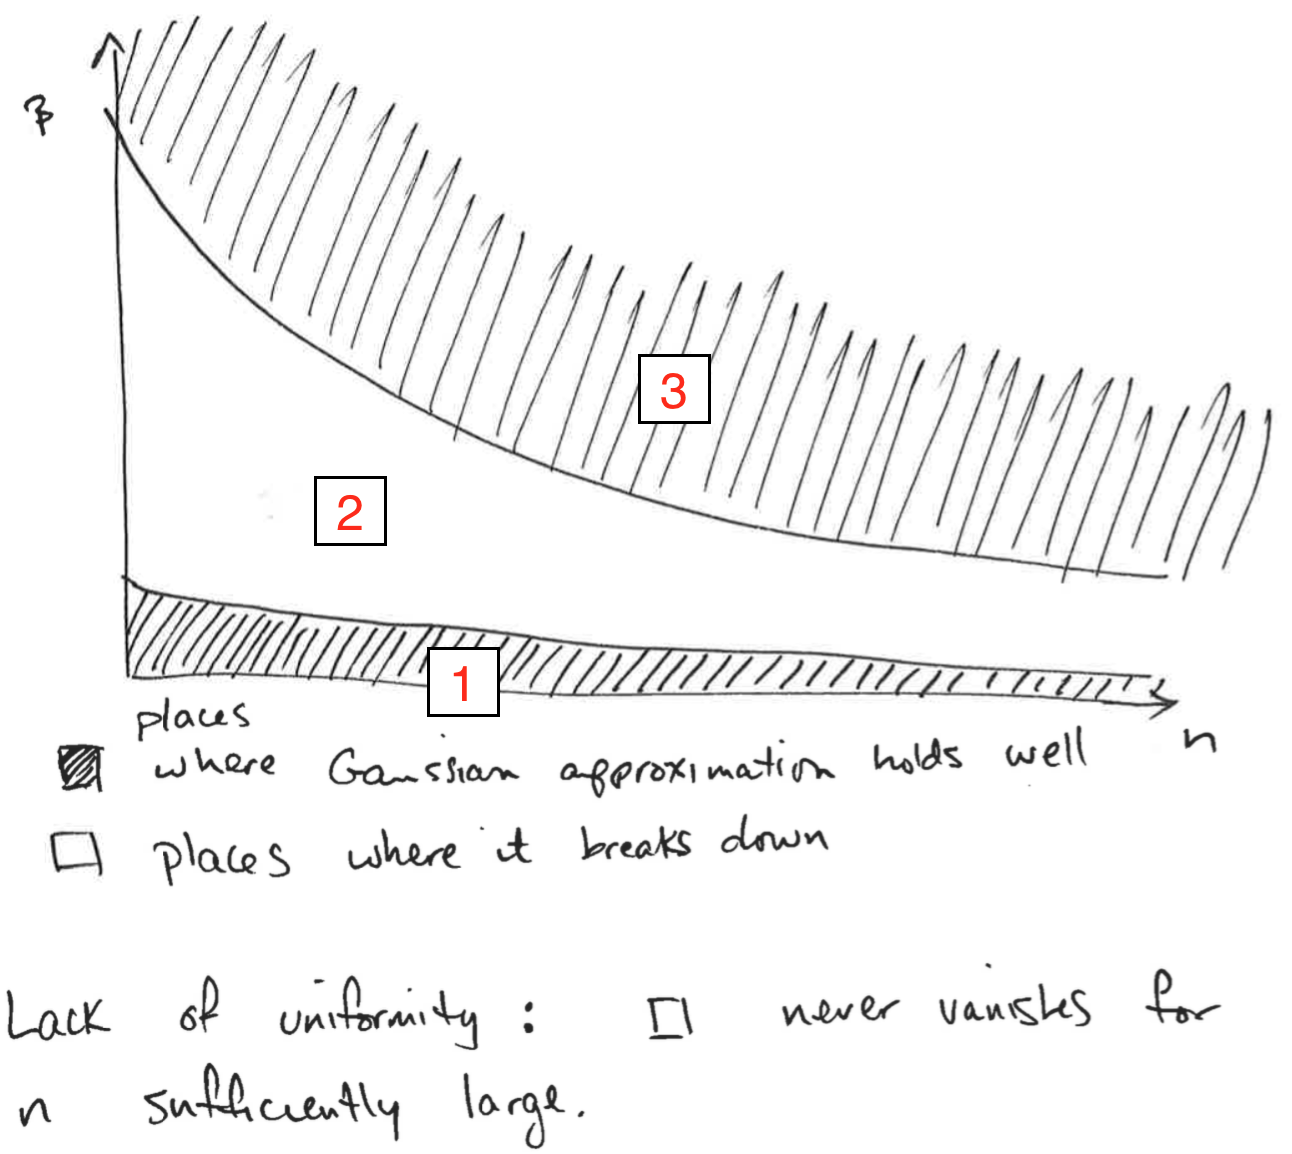 3
2
1
places
where Gaussian approximation holds well
n
places where it breaks down
Lack of uniformity : □ never vanishes for
n sufficiently large.